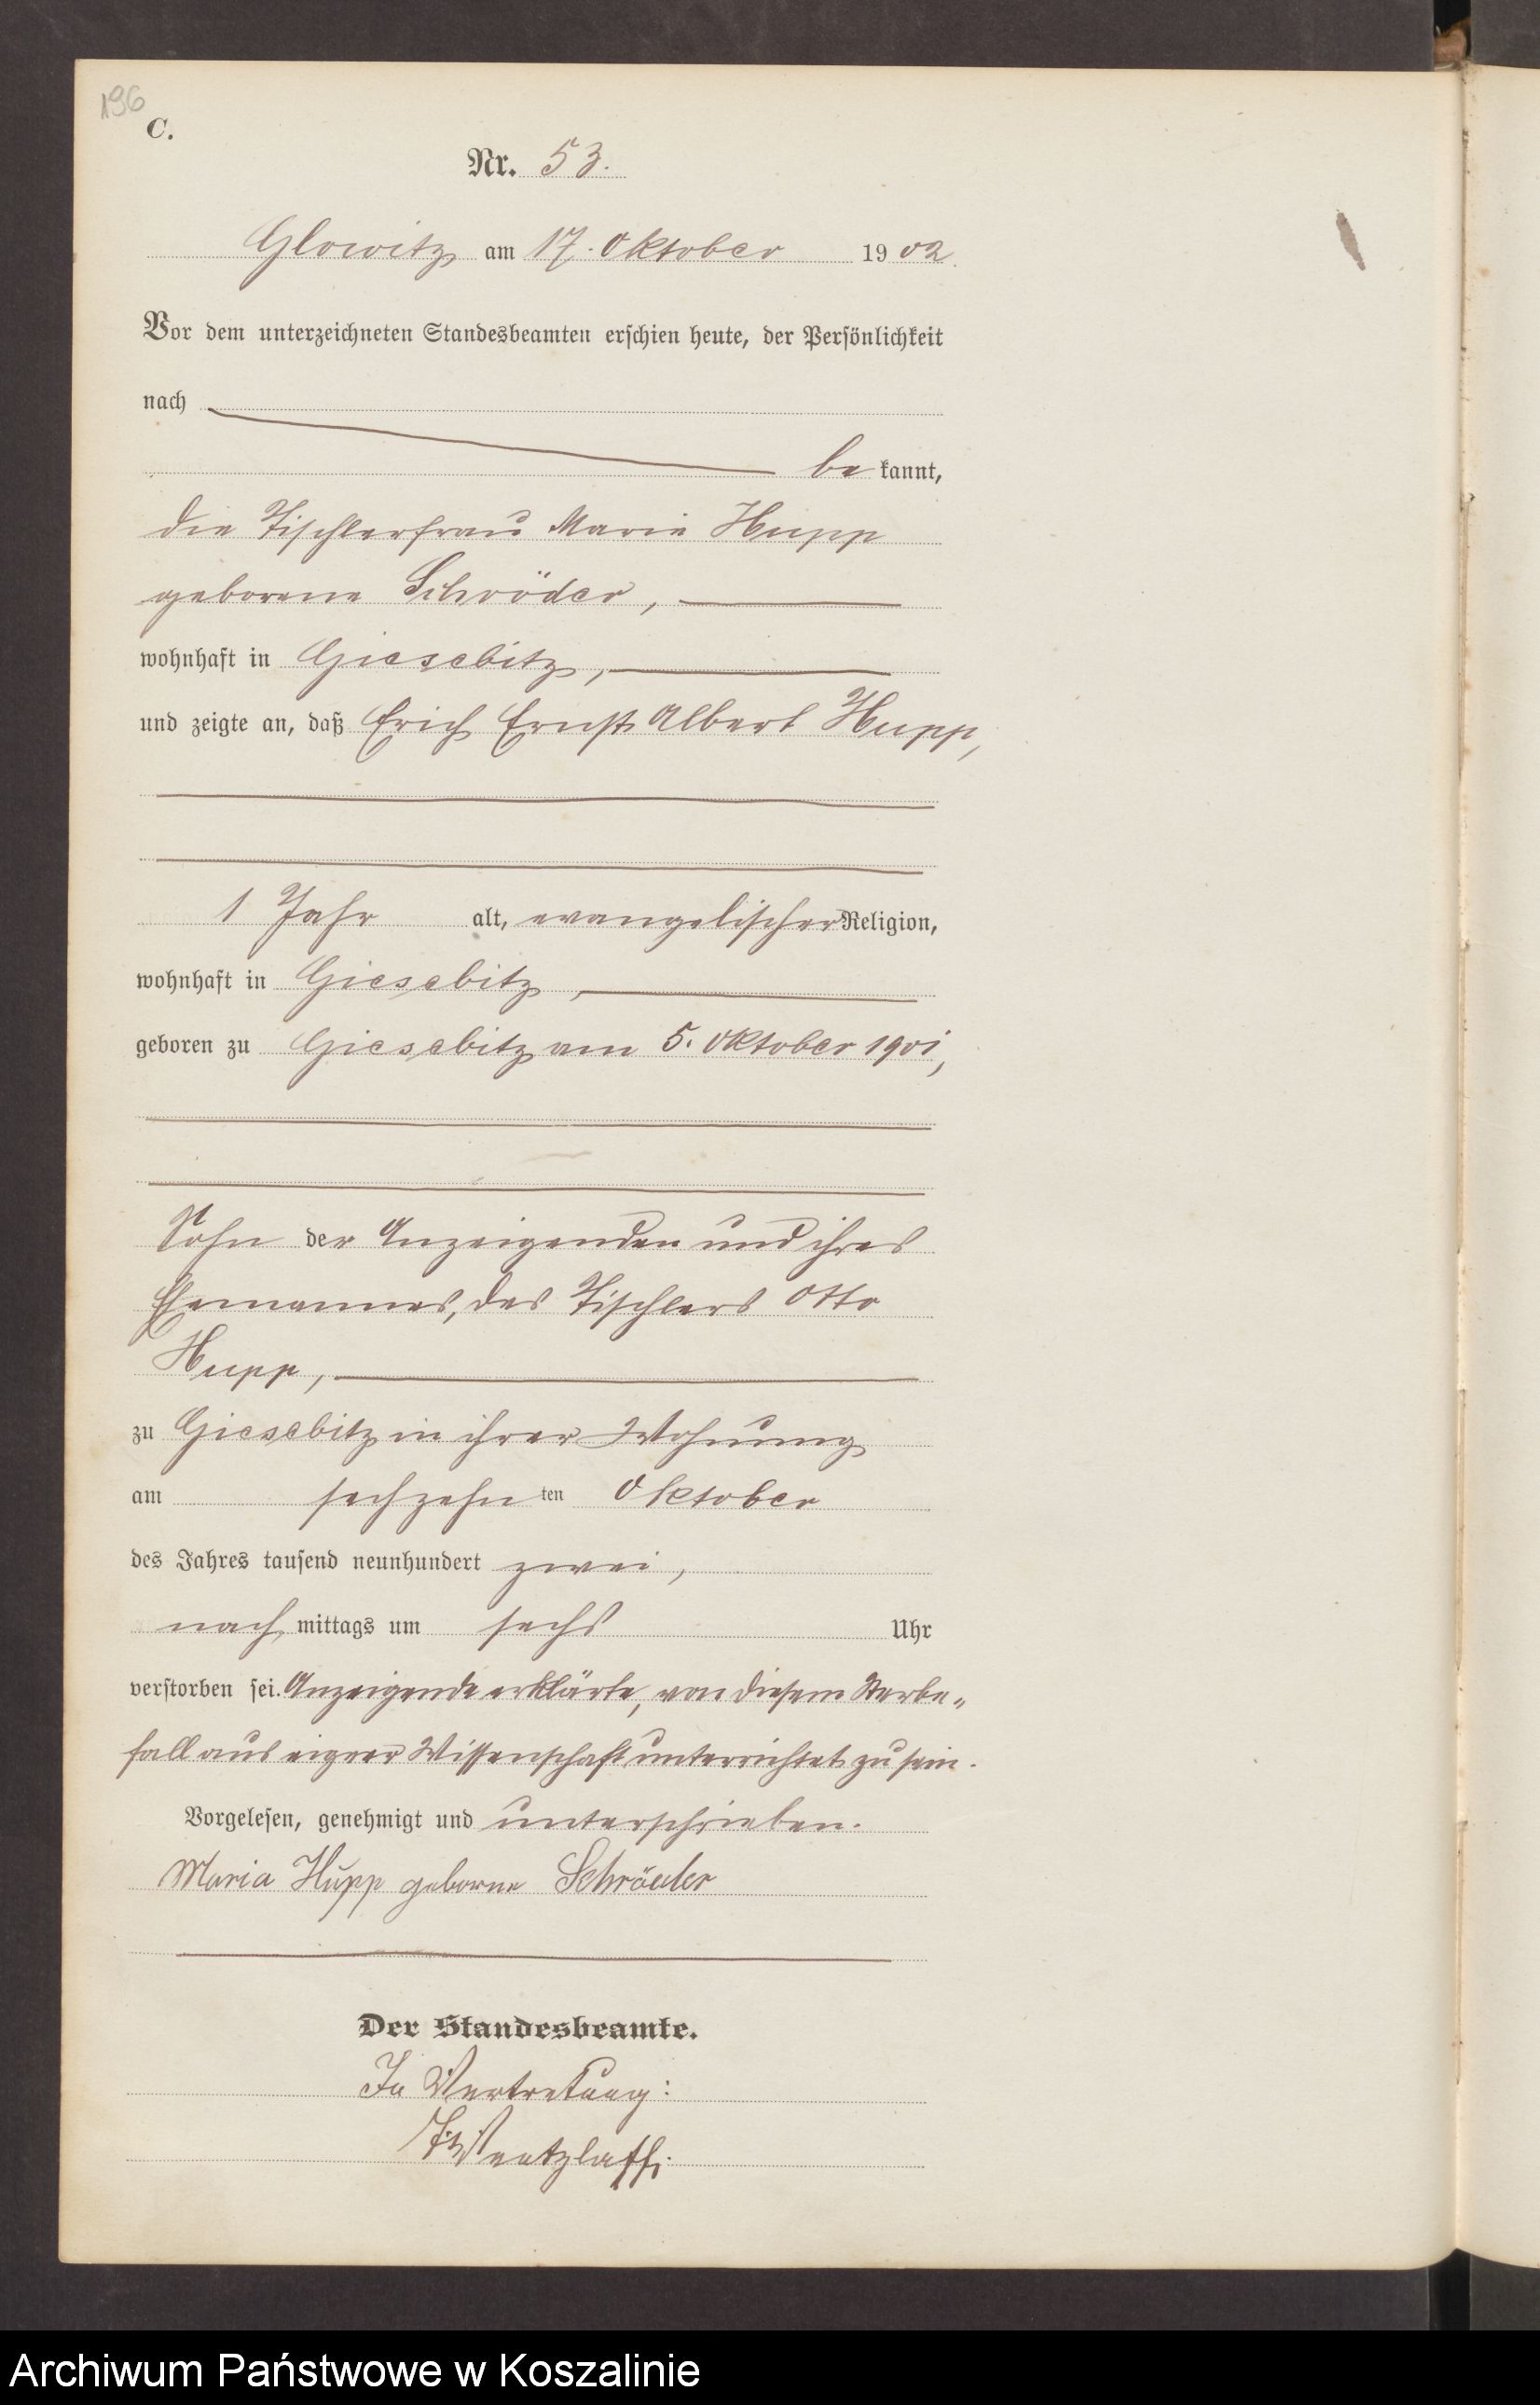 196
C.
Nr. 53.
Glowitz am 17. Oktober 1902.
Vor dem unterzeichneten Standesbeamten erschien heute, der Persönlichkeit
nach
be kannt,
die Tischlerfrau Marie Hupp
geborene Schröder,
wohnhaft in Giesebitz,
und zeigte an, daß Erich Ernst Albert Hupp,
1 Jahr alt, evangelischer Religion,
wohnhaft in Giesebitz,
geboren zu Giesebitz am 5. Oktober 1901,
Sohn der Anzeigenden und ihres
Ehemannes, des Tischlers Otto
Hupp,
zu Giesebitz in ihrer Wohnung
am sechzehn ten Oktober
des Jahres tausend neunhundert zwei,
nach mittags um sechs Uhr
verstorben sei. Anzeigende erklärte, von diesem Sterbe„
fall aus eigner Wissenschaft unterrichtet zu sein.
Vorgelesen, genehmigt und unterschrieben.
Maria Hupp geborne Schröder
Der Standesbeamte.
In Vertretung:
Wentzlaff.
Archiwum Państwowe w Koszalinie